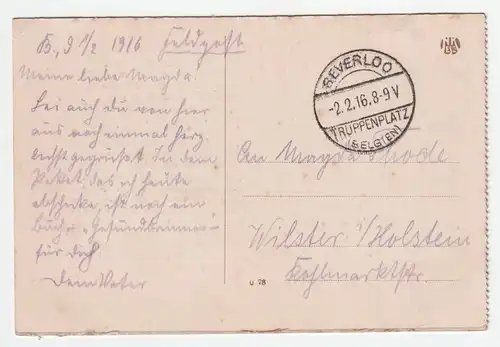 B., d 1/2 1916 Feldpost
Meine liebe Magda.
Sei auch du von hier
aus noch einmal herz-
lichst gegrüßt. In dem
Paket, das ich heute
abschicke, ist noch ein
Buch: „Gesundbrunnen“
für dich
Dein Vater
BEVERLOO
-2.2.16.8-9V
TRUPPENPLATZ
(BELGIEN)
An Magda Thode
Wilster i/Holstein
Kohlmarktstr.
U 28